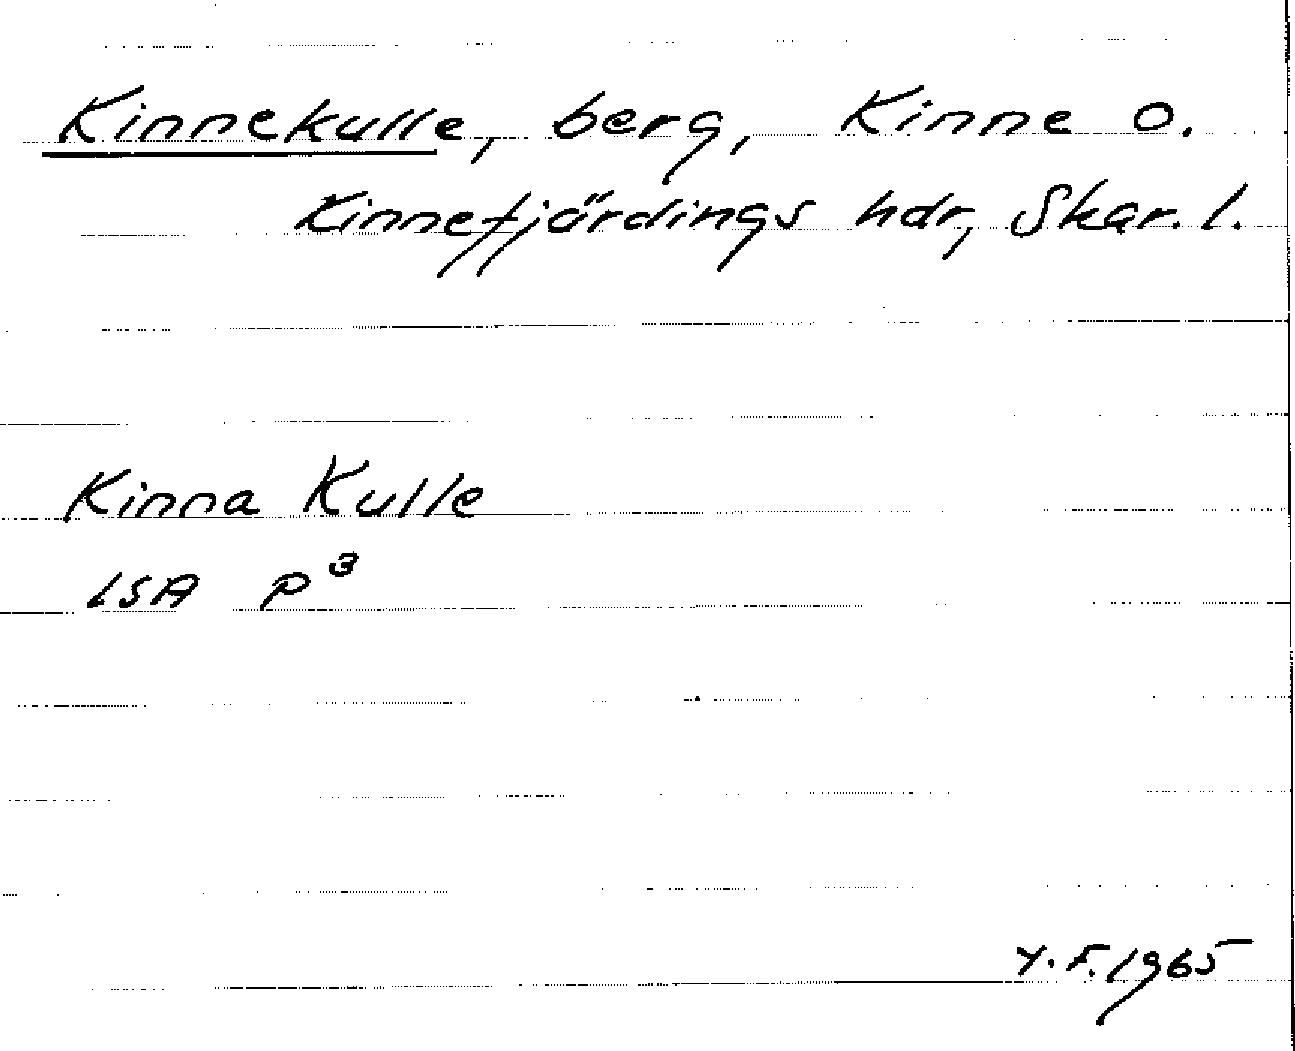 Kinnekulle, berg, Kinne o.
Kinnefjärdings hdr, Skar. l.
Kinna Kulle
LSA P³
Y.F. 1965